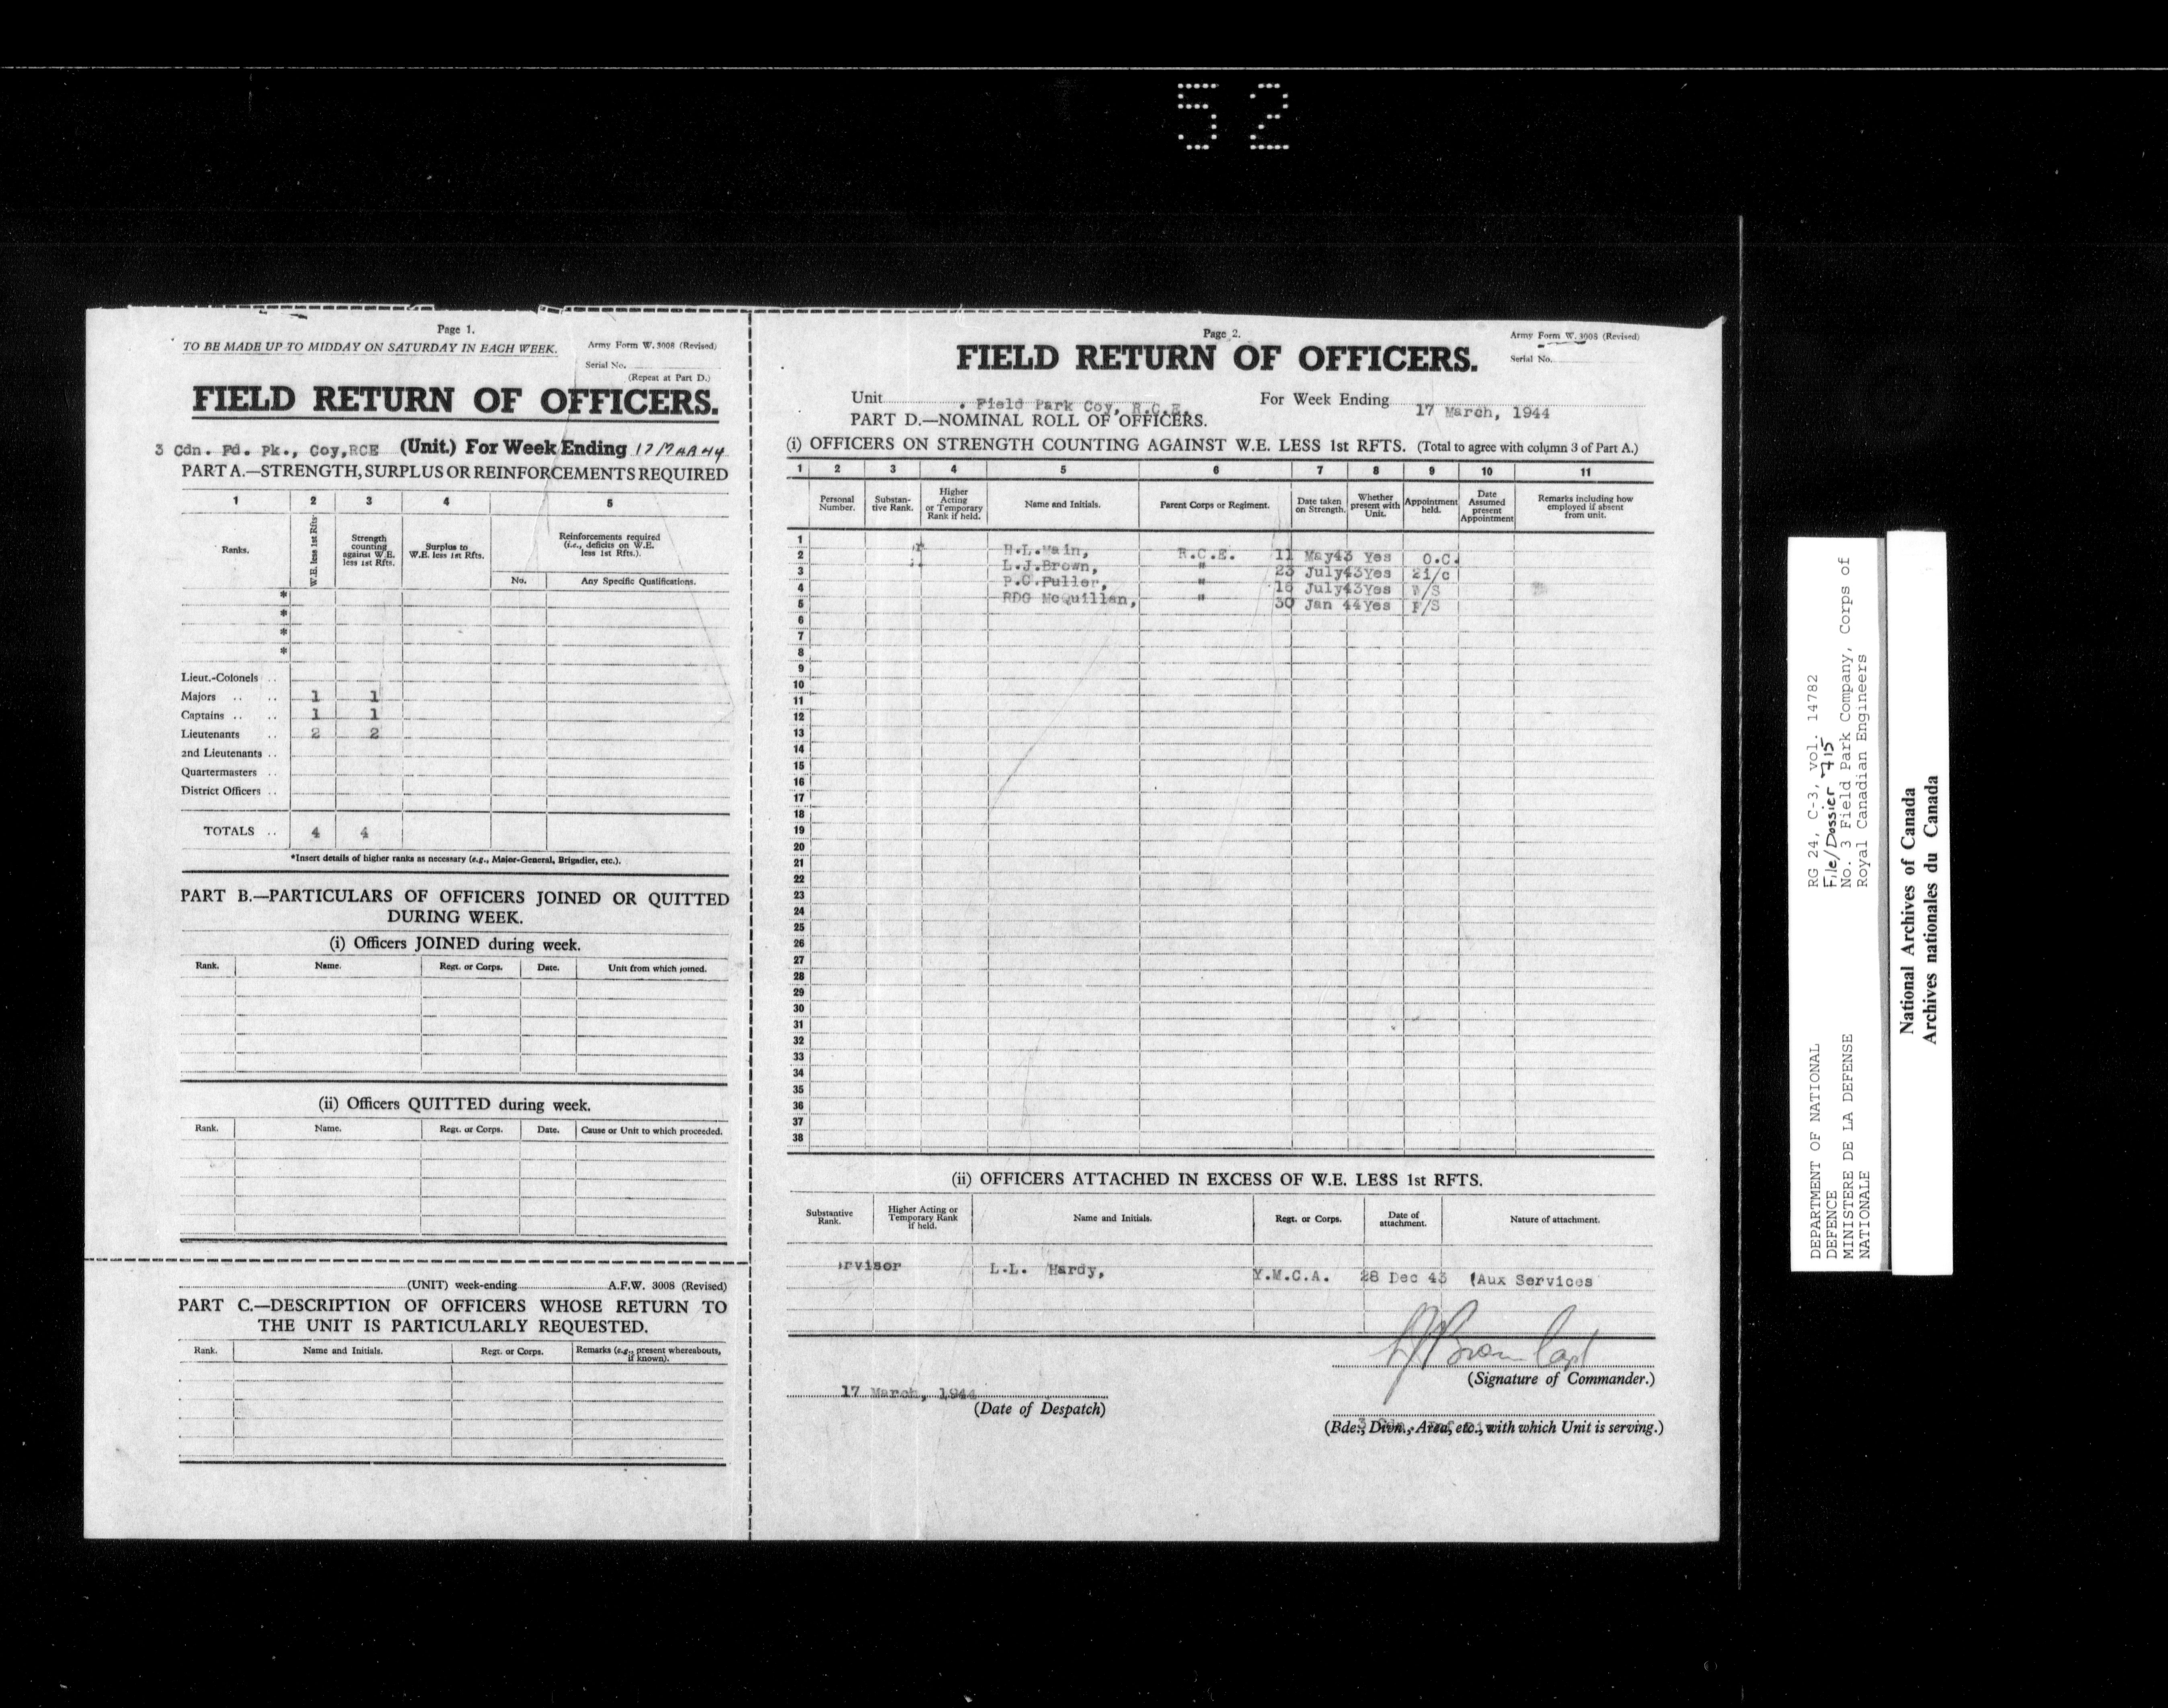 52
Page 1.
TO BE MADE UP TO MIDDAY ON SATURDAY IN EACH WEEK.
Army Form W. 3008 (Revised)
Serial No.
(Repeat at Part D.)
FIELD RETURN OF OFFICERS.
3 Cdn. Fd. Pk., Coy, RCE (Unit.) For Week Ending 17 MAR 44
PART A.—STRENGTH, SURPLUS OR REINFORCEMENTS REQUIRED
1 2 3 4 5
Ranks. W.E. less 1st Rfts. Strength counting against W.E. less 1st Rfts. Surplus to W.E. less 1st Rfts. Reinforcements required (i.e., deficits on W.E. less 1st Rfts.).
No. Any Specific Qualifications.
*
*
*
*
Lieut.-Colonels ..
Majors .. .. 1 1
Captains .. .. 1 1
Lieutenants .. 2 2
2nd Lieutenants ..
Quartermasters ..
District Officers ..
TOTALS .. 4 4
*Insert details of higher ranks as necessary (e.g., Major-General, Brigadier, etc.).
PART B.—PARTICULARS OF OFFICERS JOINED OR QUITTED
DURING WEEK.
(i) Officers JOINED during week.
Rank. Name. Regt. or Corps. Date. Unit from which joined.
(ii) Officers QUITTED during week.
Rank. Name. Regt. or Corps. Date. Cause or Unit to which proceeded.
(UNIT) week-ending A.F.W. 3008 (Revised)
PART C.—DESCRIPTION OF OFFICERS WHOSE RETURN TO
THE UNIT IS PARTICULARLY REQUESTED.
Rank. Name and Initials. Regt. or Corps. Remarks (e.g., present whereabouts, if known).
Page 2.
Army Form W. 3008 (Revised)
Serial No.
FIELD RETURN OF OFFICERS.
Unit . Field Park Coy, R.C.E. For Week Ending 17 March, 1944
PART D.—NOMINAL ROLL OF OFFICERS.
(i) OFFICERS ON STRENGTH COUNTING AGAINST W.E. LESS 1st RFTS. (Total to agree with column 3 of Part A.)
1 2 3 4 5 6 7 8 9 10 11
Personal Number. Substantive Rank. Higher Acting or Temporary Rank if held. Name and Initials. Parent Corps or Regiment. Date taken on Strength. Whether present with Unit. Appointment held. Date Assumed present Appointment Remarks including how employed if absent from unit.
1
2 H.L. Main, R.C.E. 11 May 43 Yes O.C.
3 L.J. Brown, " 23 July 43 Yes 2i/c
4 P.C. Fuller, " 16 July 43 Yes W/S
5 RDG McQuillan, " 30 Jan 44 Yes F/S
6
7
8
9
10
11
12
13
14
15
16
17
18
19
20
21
22
23
24
25
26
27
28
29
30
31
32
33
34
35
36
37
38
(ii) OFFICERS ATTACHED IN EXCESS OF W.E. LESS 1st RFTS.
Substantive Rank. Higher Acting or Temporary Rank if held. Name and Initials. Regt. or Corps. Date of attachment. Nature of attachment.
rvisor L.L. Hardy, Y.M.C.A. 28 Dec 43 (Aux Services
LJ Brown Capt
(Signature of Commander.)
17 March, 1944
(Date of Despatch)
(Bde., Divn., Area, etc., with which Unit is serving.)
RG 24, C-3, vol. 14782
File/Dossier 715
No. 3 Field Park Company, Corps of
Royal Canadian Engineers
DEPARTMENT OF NATIONAL
DEFENCE
MINISTERE DE LA DEFENSE
NATIONALE
National Archives of Canada
Archives nationales du Canada